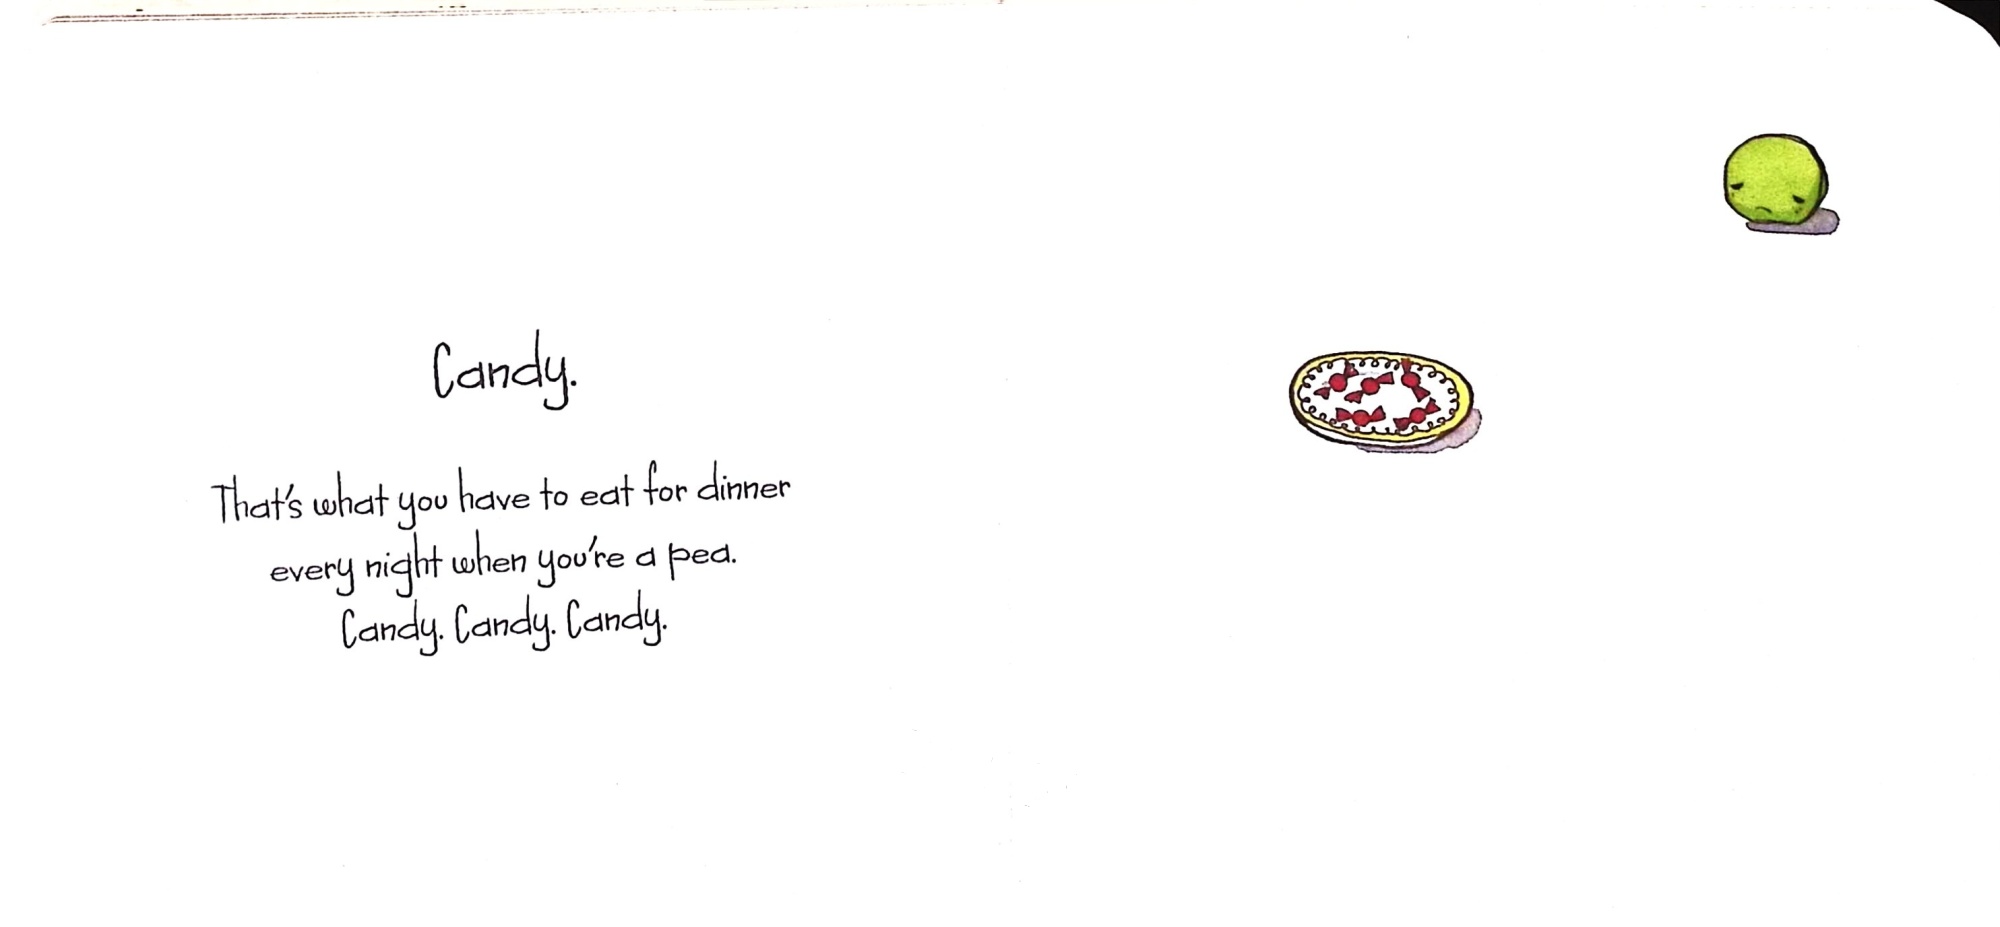 Candy.
That's what you have to eat for dinner
every night when you're a pea.
Candy. Candy. Candy.